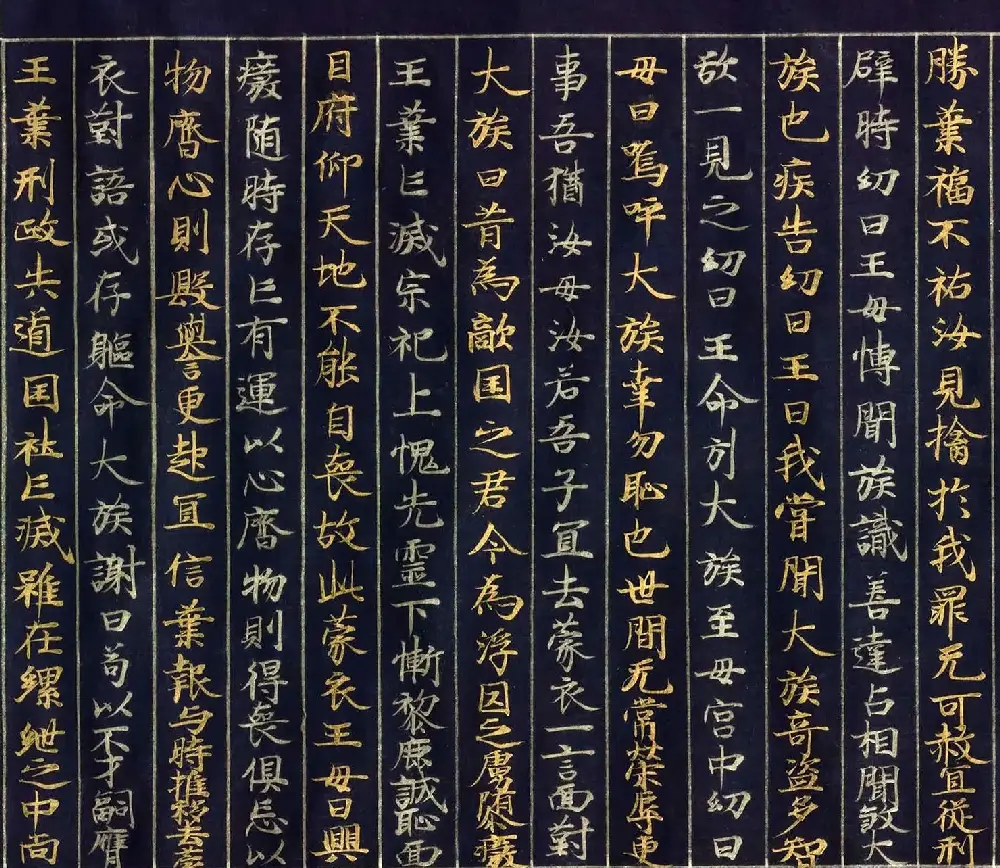 勝葉福不祐汝見擒於我罪无可赦宜從刑
辟時幼日王母博聞族識善達占相聞敘大
族也疾告幼日王曰我嘗聞大族奇盗多智
欲一見之幼日王命引大族至母宮中幼日
母曰嗚呼大族幸勿恥也世間无常榮辱更
事吾猶汝母汝若吾子冝去蒙衣一言面對
大族曰昔為敵国之君今為浮囚之虜隳癈
王葉亡滅宗祀上愧先靈下慚黎庶誠恥面
目府仰天地不能自喪故此蒙衣王母曰興
癈随時存亡有運以心齊物則得喪俱忘以
物齊心則毀譽更起冝信葉報与時推移去蒙
衣對語或存軀命大族謝曰苟以不才嗣膺
王葉刑政失道囯社亡滅雖在縲紲之中尚